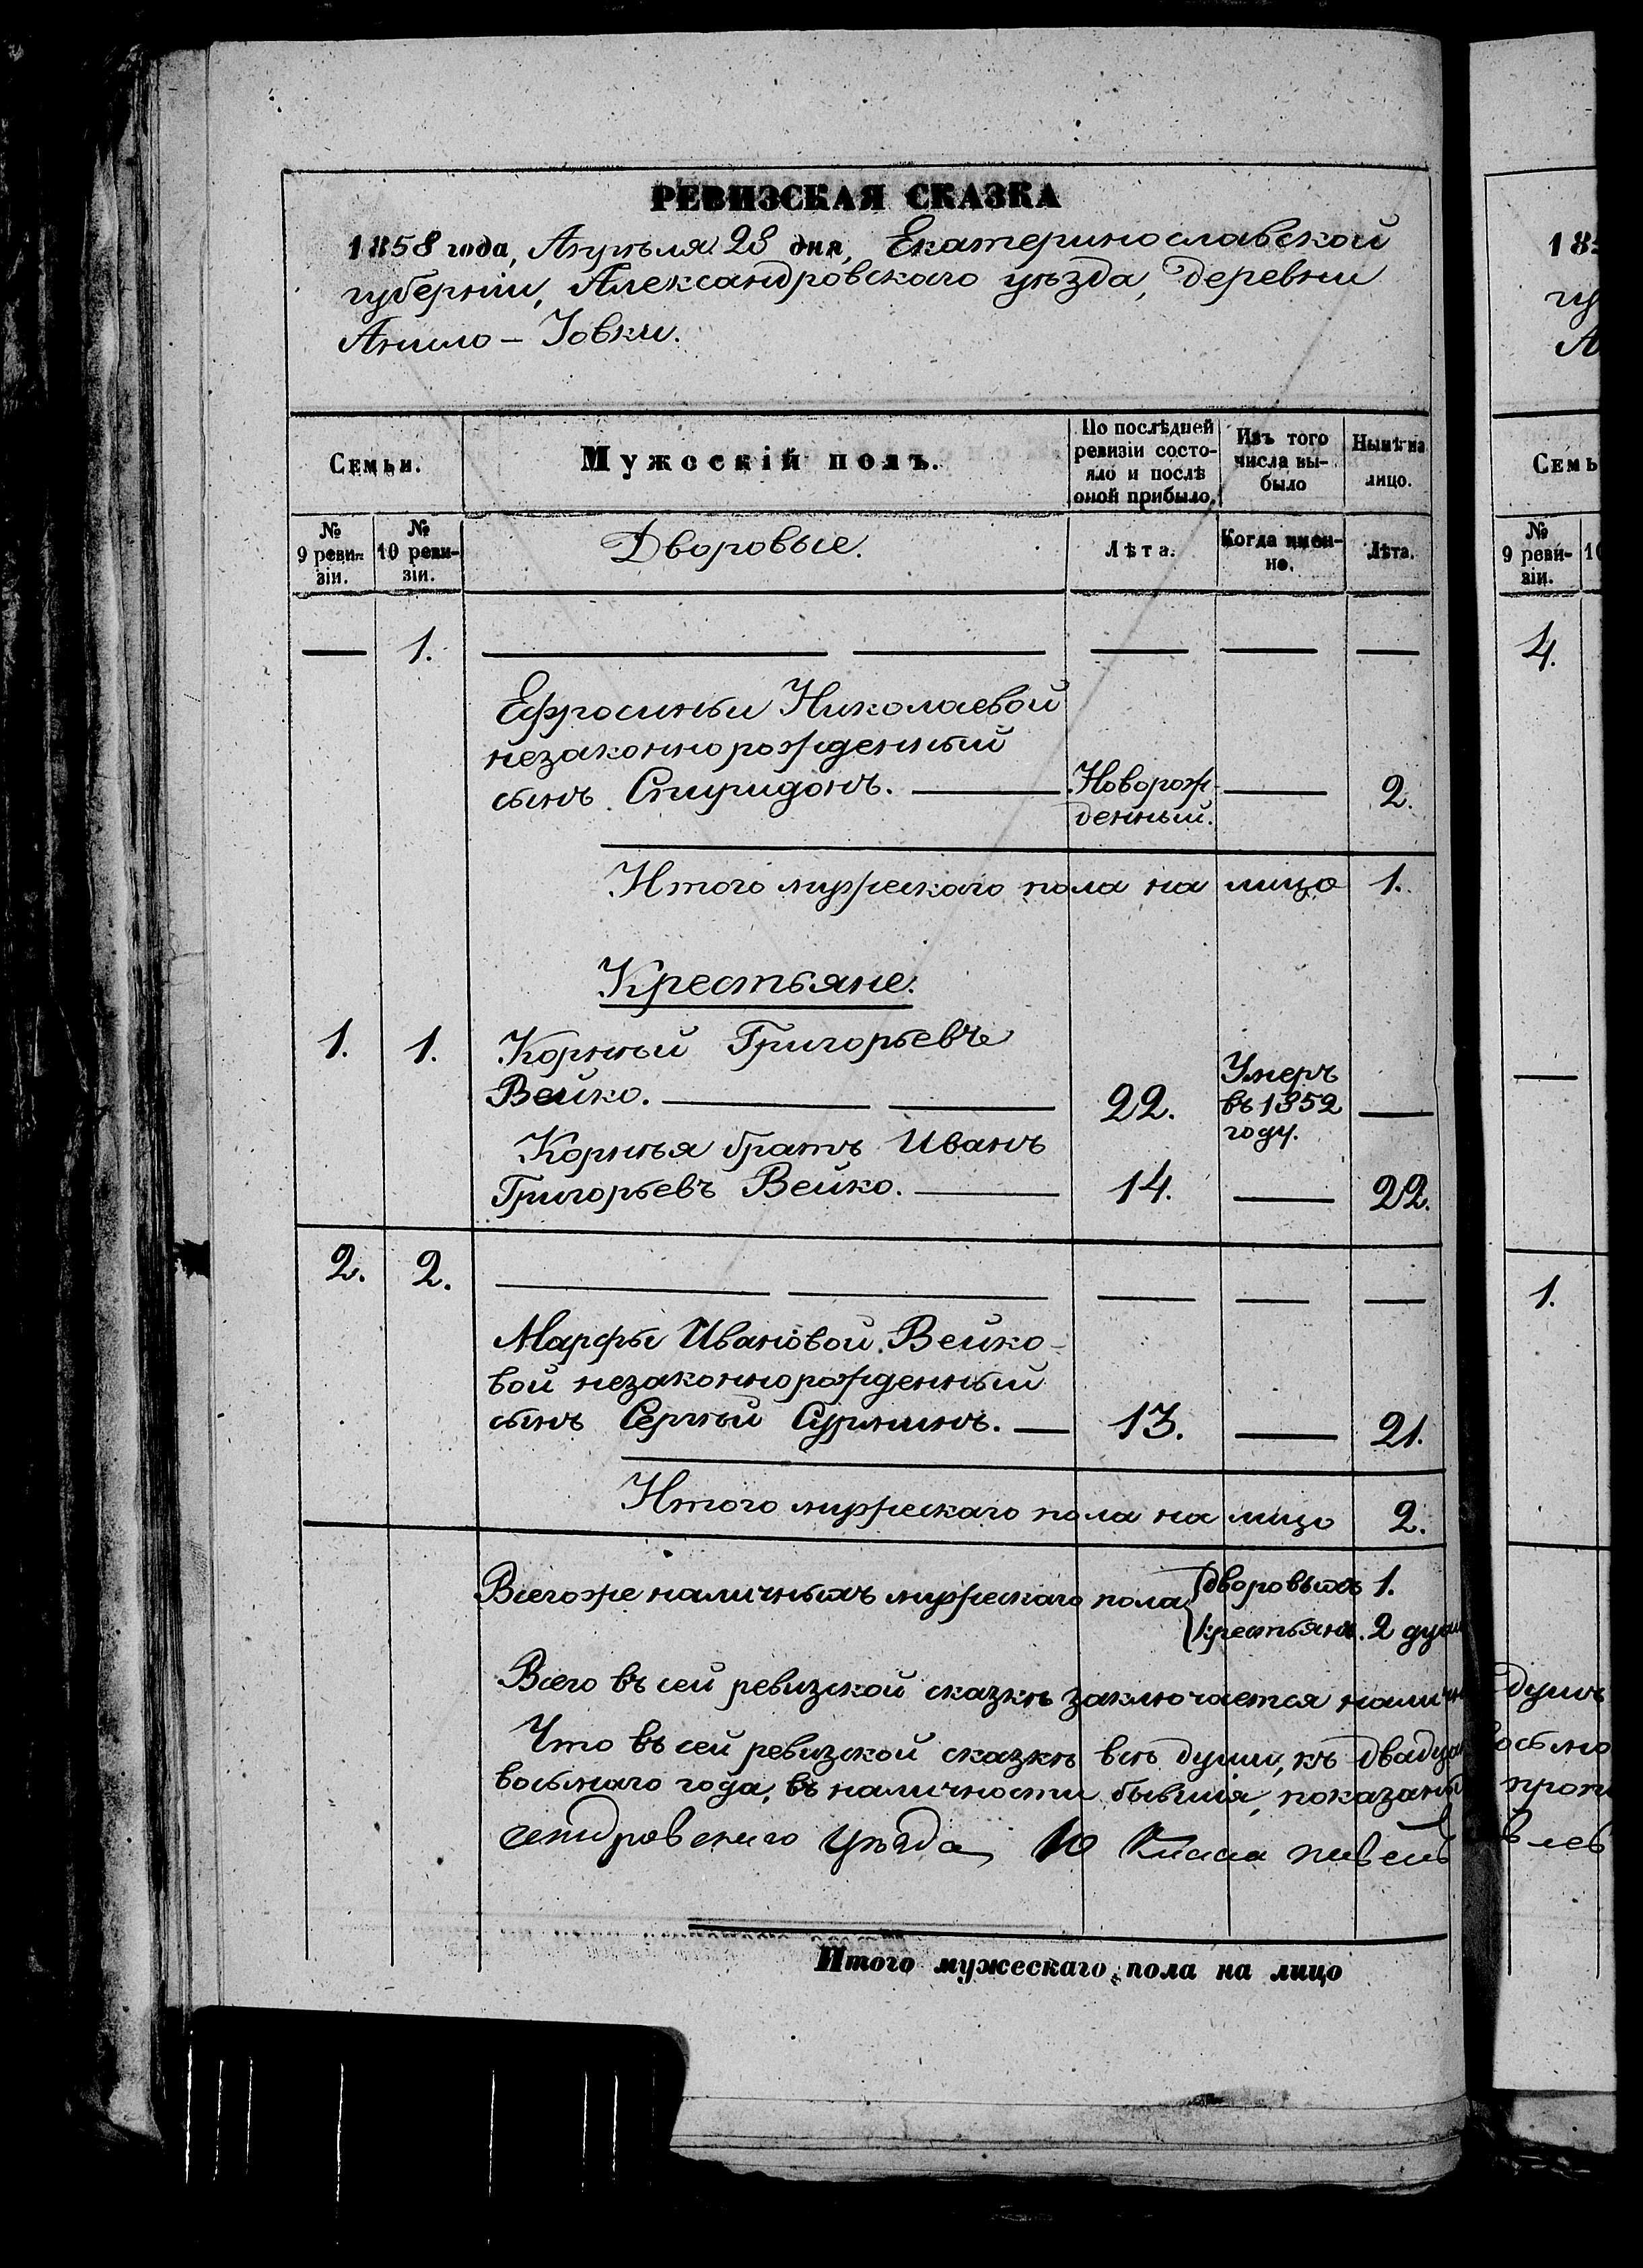 РЕВИЗСКАЯ СКАЗКА
1858 года, Апрѣля 28 дня, Екатеринославской
губерніи, Александровскаго уѣзда, деревни
Анило - Іовки.
Семьи.
Мужескій полъ.
По послѣдней
ревизіи состо-
яло и послѣ
оной прибыло.
Изъ того
числа вы-
было
Нынѣ на
лицо.
№
9 реви-
зіи.
№
10 реви-
зіи.
Дворовые.
Лѣта.
Когда имен-
но.
Лѣта.
— 1. — — — — —
Ефросиньи Николаевой
незаконнорожденный
сынъ Спиридонъ. — Новорож- — 2.
денный.
Итого мужескаго пола на лицо 1.
Крестьяне.
1. 1. Корнѣй Григорьевъ
Вейко. — — 22. Умеръ —
въ 1852
году.
Корнѣя братъ Иванъ
Григорьевъ Вейко. — 14. — 22.
2. 2. — — — — —
Марфы Ивановой Вейко-
вой незаконнорожденный
сынъ Сергѣй — 13. — 21.
Итого мужескаго пола на лицо 2.
Всего же наличныхъ мужескаго пола дворовыхъ 1.
крестьянъ. 2 души
Всего въ сей ревизской сказкѣ заключается налич
Что въ сей ревизской сказкѣ всѣ души, къ двадца
восьмаго года, въ наличности бывшія, показаны
сандровскаго уѣзда, 10 класса
Итого мужескаго пола на лицо
185
гу
А
Семь
№
9 реви-
зіи.
10
4.
—
1.
душъ
осьмо